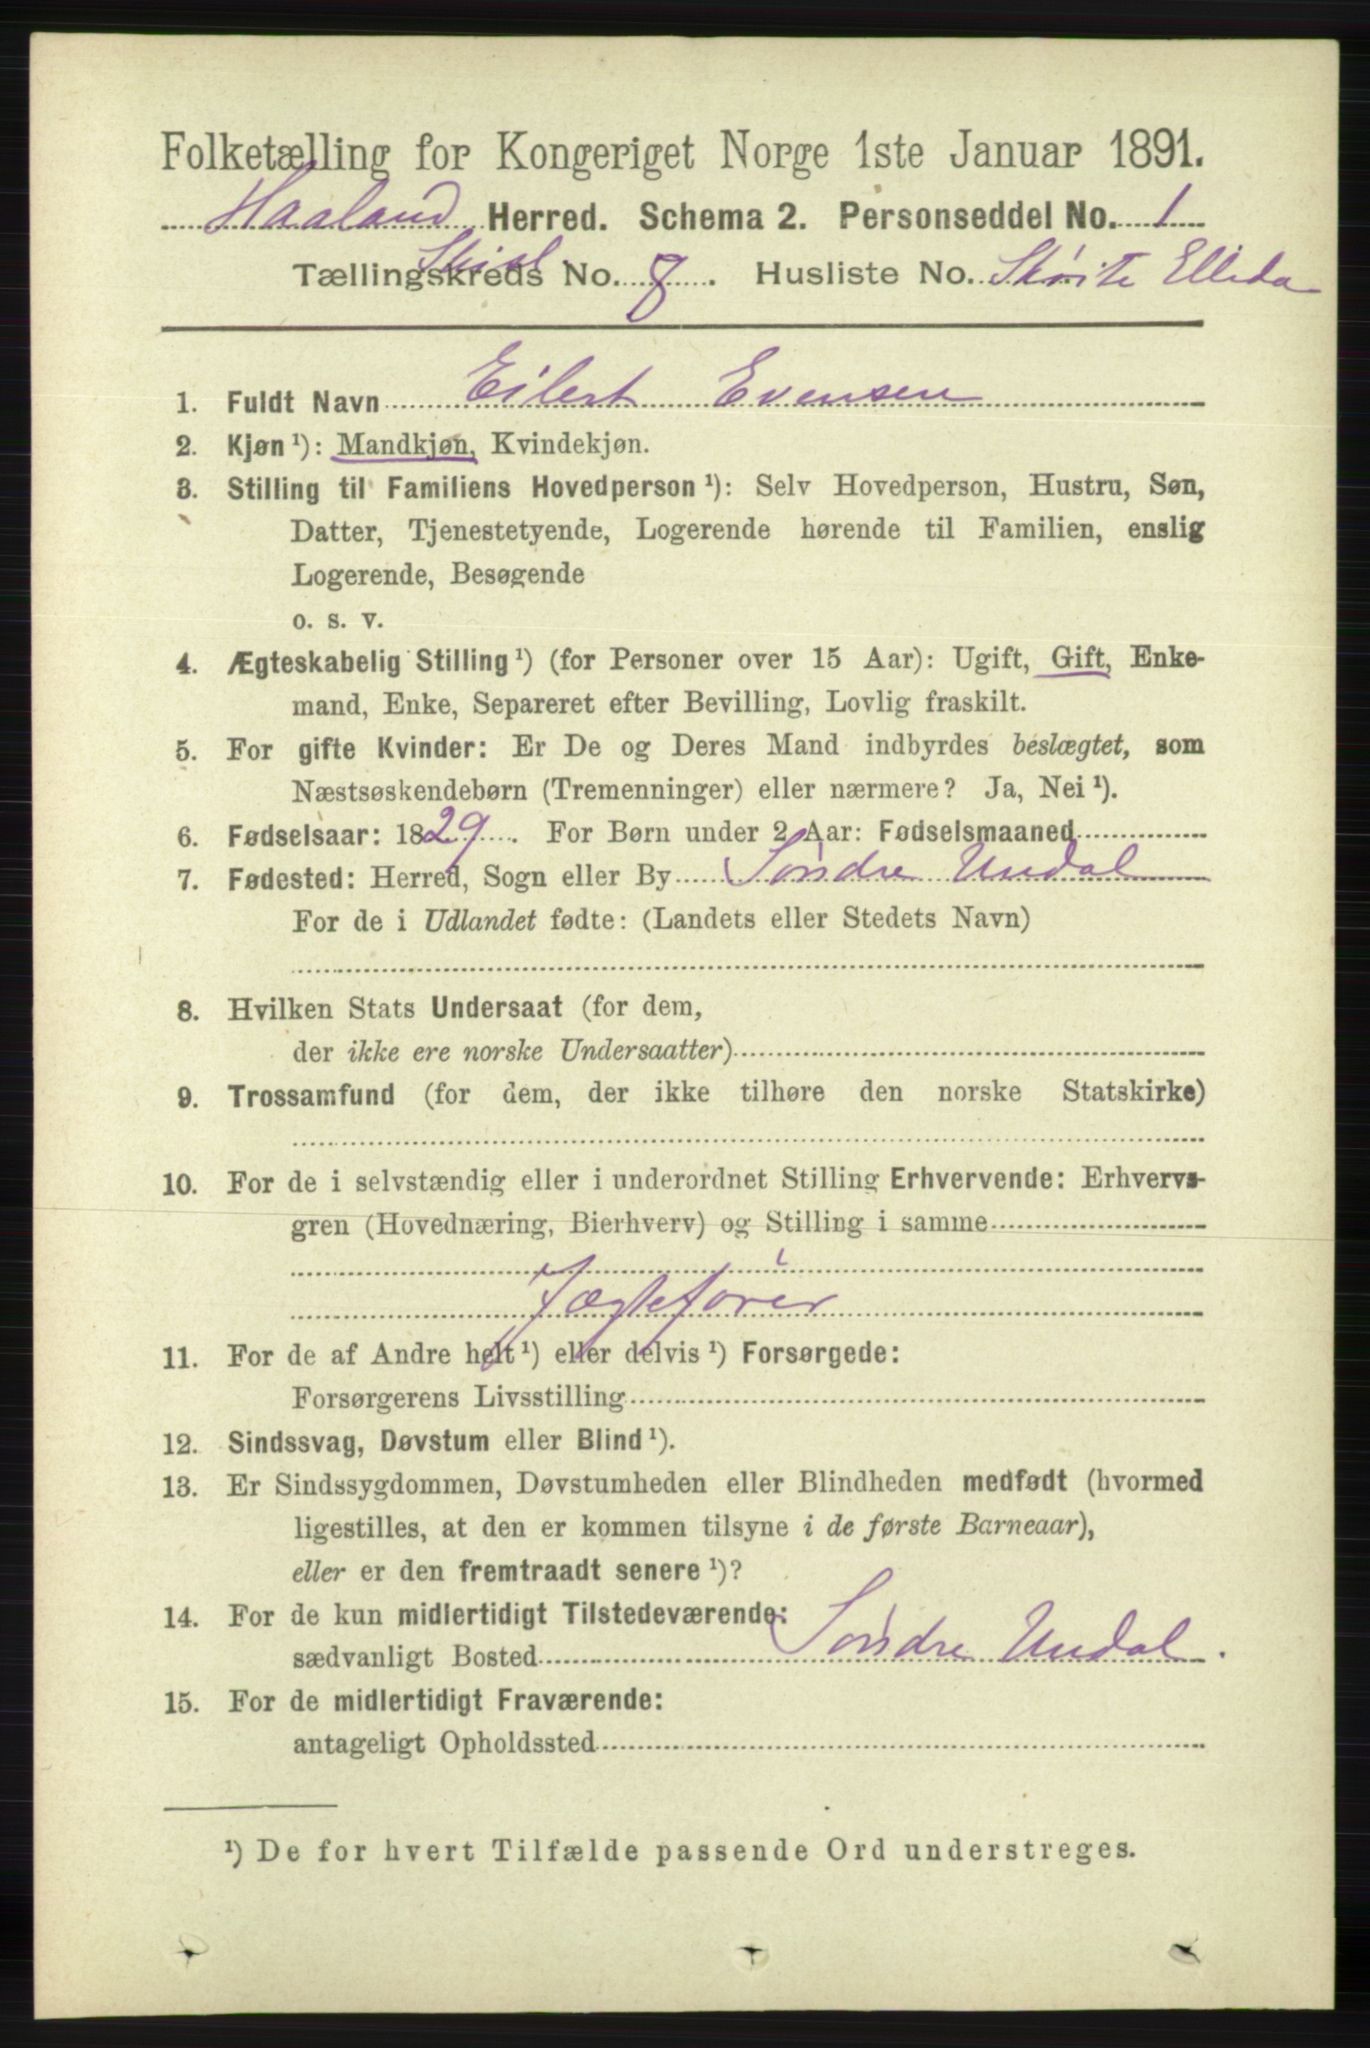 Folketælling for Kongeriget Norge 1ste Januar 1891.
Haaland Herred. Schema 2. Personseddel No. 1
Tællingskreds No. 8. Husliste No. Ellida
1. Fuldt Navn Eilert Evensen
2. Kjøn ¹): Mandkjøn, Kvindekjøn.
3. Stilling til Familiens Hovedperson ¹): Selv Hovedperson, Hustru, Søn,
Datter, Tjenestetyende, Logerende hørende til Familien, enslig
Logerende, Besøgende
o. s. v.
4. Ægteskabelig Stilling ¹) (for Personer over 15 Aar): Ugift, Gift, Enke-
mand, Enke, Separeret efter Bevilling, Lovlig fraskilt.
5. For gifte Kvinder: Er De og Deres Mand indbyrdes beslægtet, som
Næstsøskendebørn (Tremenninger) eller nærmere? Ja, Nei ¹).
6. Fødselsaar: 1829. For Børn under 2 Aar: Fødselsmaaned
7. Fødested: Herred, Sogn eller By Søndre Undal
For de i Udlandet fødte: (Landets eller Stedets Navn)
8. Hvilken Stats Undersaat (for dem,
der ikke ere norske Undersaatter)
9. Trossamfund (for dem, der ikke tilhøre den norske Statskirke)
10. For de i selvstændig eller i underordnet Stilling Erhvervende: Erhvervs-
gren (Hovednæring, Bierhverv) og Stilling i samme
Jægtefører
11. For de af Andre helt ¹) eller delvis ¹) Forsørgede:
Forsørgerens Livsstilling
12. Sindssvag, Døvstum eller Blind ¹).
13. Er Sindssygdommen, Døvstumheden eller Blindheden medfødt (hvormed
ligestilles, at den er kommen tilsyne i de første Barneaar),
eller er den fremtraadt senere ¹)?
14. For de kun midlertidigt Tilstedeværende:
sædvanligt Bosted Søndre Undal.
15. For de midlertidigt Fraværende:
antageligt Opholdssted
¹) De for hvert Tilfælde passende Ord understreges.